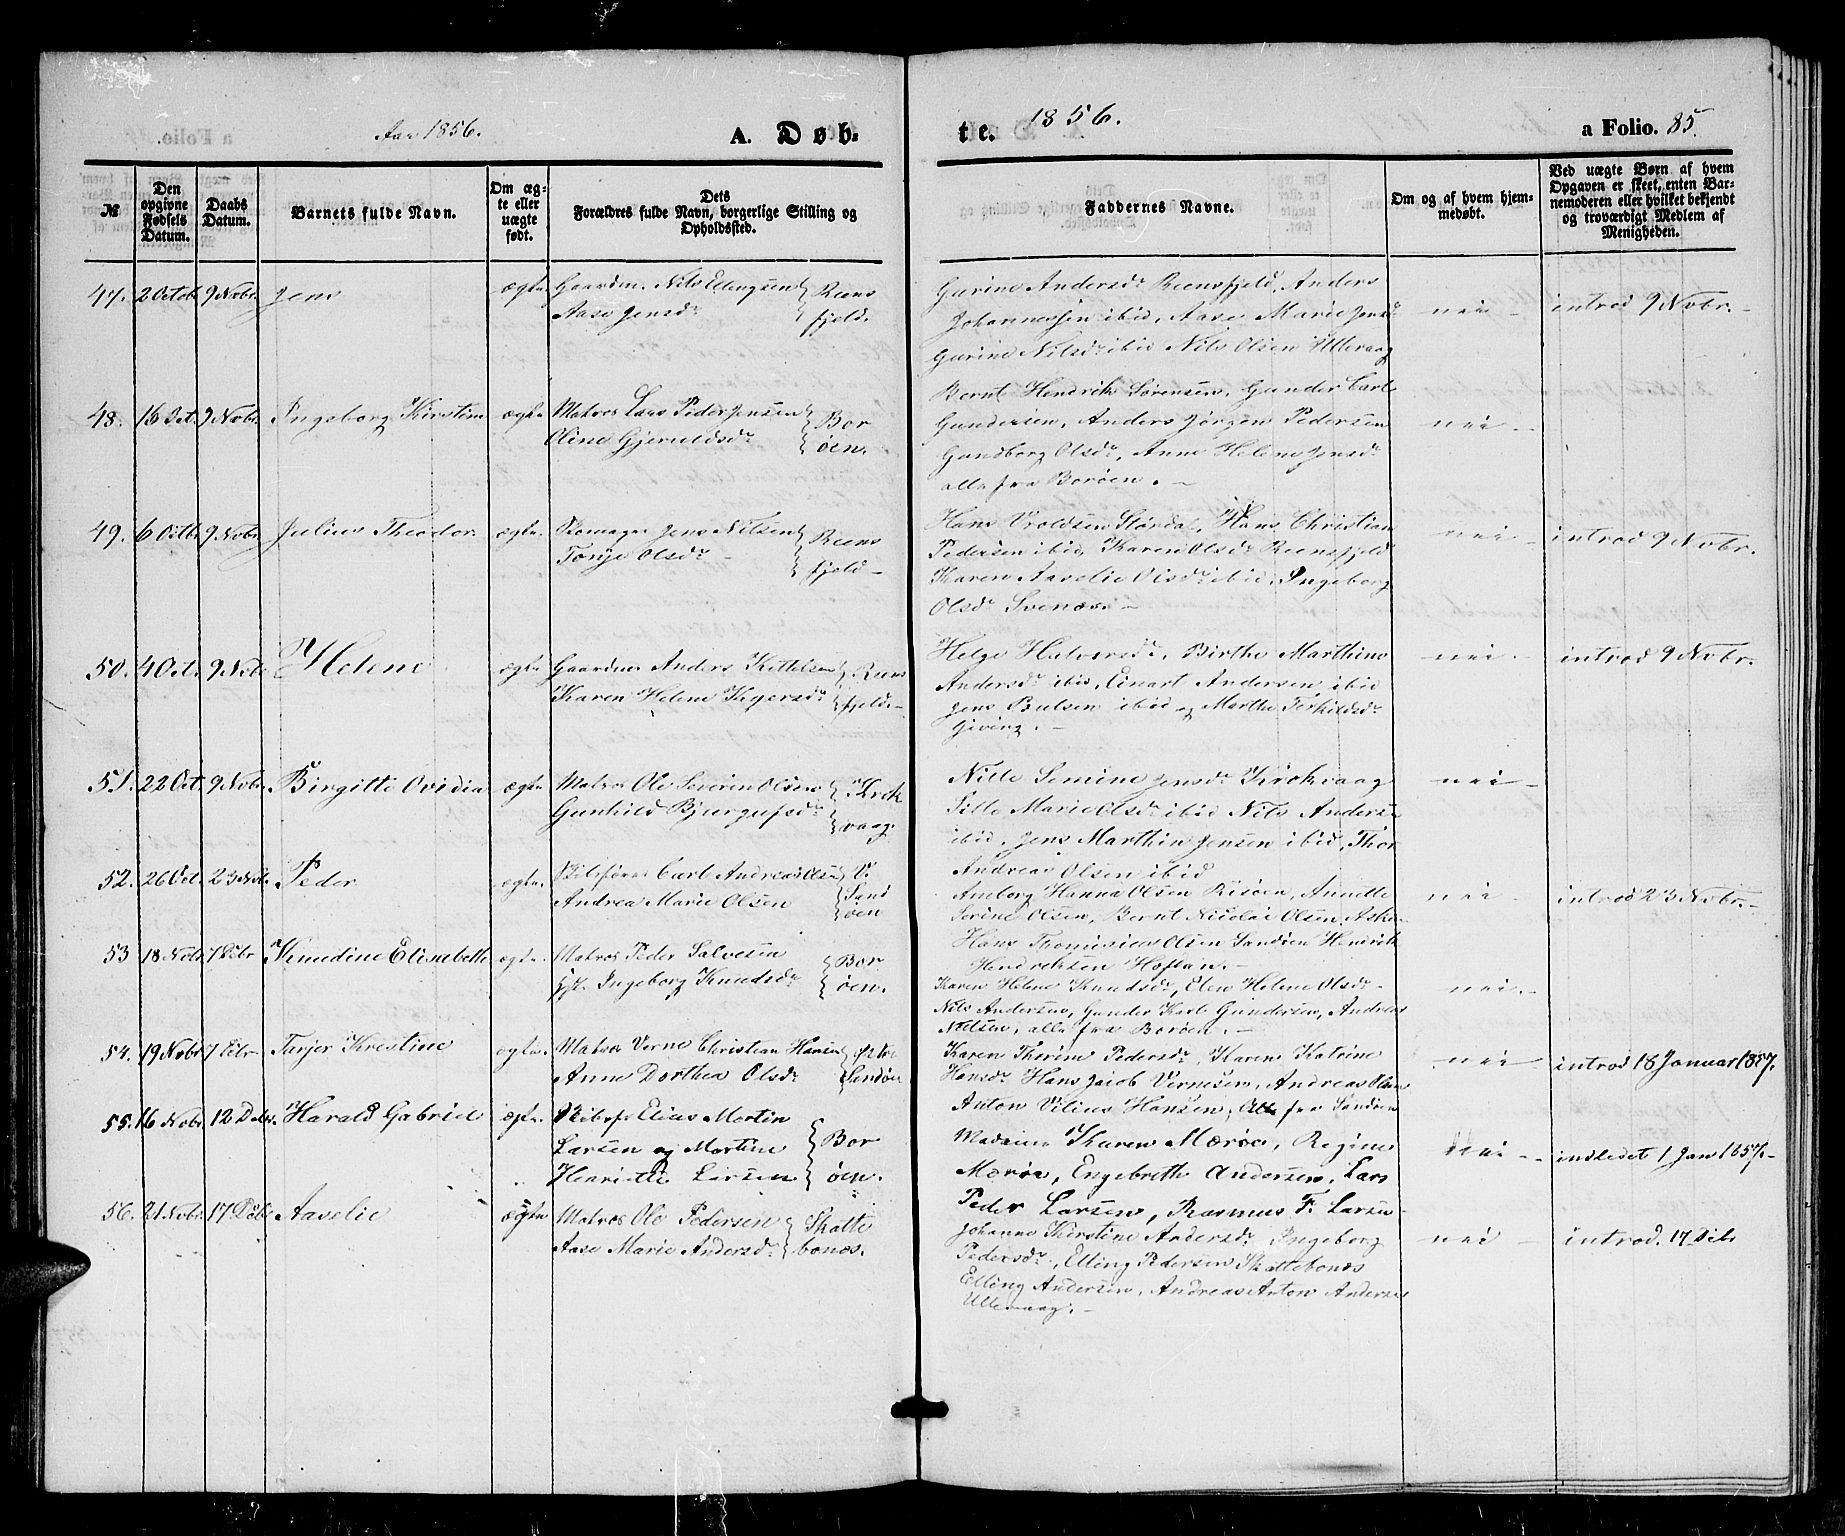 Aar 1856.
A. Døb-
te. 1856.
a Folio. 85.
№
Den opgivne Fødsels Datum.
Daabs Datum.
Barnets fulde Navn.
Om ægte eller uægte født.
Dets Forældres fulde Navn, borgerlige Stilling og Opholdssted.
Faddernes Navne.
Om og af hvem hjemmedøbt.
Ved uægte Børn af hvem Opgaven er skeet, enten Barnemoderen eller hvilket bekjendt og troværdigt Medlem af Menigheden.
47. 2 Octob. 9 Nobr. Jens ægte. Gaardm. Nils Ellingsen
Aase Jensdr. Reens
fjeld.
Gurine Andersdr. Reensfjeld, Anders
Johannessen ibid, Aase Marie Jensdr
Gurine Nilsdr. ibid Nils Olsen Ullevaag
nei - introd 9 Nobr. -
48. 16 Oct. 9 Nobr. Ingeborg Kirstine ægte. Matros Lars Peder Jensen
Oline Gjeruldsdr. Bor
øen.
Bernt Hendrik Sørensen, Gunder Carl
Gundersen, Anders Jørgen Pedersen
Gundborg Olsdr., Anne Helene Jensdr.
alle fra Borøen. -
nei -
49. 6 Octbr. 9 Nobr. Julius Theodor. ægte. Skomager Jens Nilsen
Tonje Olsdr. - Reens
fjeld -
Hans Vroldsen Størdal, Hans Christian
Pedersen ibid, Karen Olsdr. Reensfjeld
Karen Aaselie Olsdr. ibid, Ingeborg
Olsdr. Svenær. -
nei - introd 9 Nobr.
50. 4 Oct. 9 Nobr. Helene ægte Gaardm. Anders Kittelsen
Karen Helene Kigersdr. Reens
fjeld. -
Helge Halvorsdr., Birthe Marthine
Andersdr. ibid, Einart Andersen ibid
Jens Poulsen ibid og Marthe Terkildsdr.
Giving. -
nei - introd 9 Nobr.
51. 22 Oct. 9 Nobr. Birgitte Ovidia ægte. Matros Ole Severin Olsen
Gunhild Bjergufsdr. Krok
vaag.
Nille Semine Jensdr. Krokvaag
Sille Marie Olsdr. ibid Nils Anders
ibid, Jens Marthin Jensen ibid, Thor
Andreas Olsen ibid
nei -
52. 26 Oct. 23 Nob. Peder ægte. Skibsfører Carl Andreas Olsen
Andrea Marie Olsen V.
Sand
øen
Amborg Hanna Olsen Risøen, Annette
Serine Olsen, Bernt Nicolai Olsen Aske
Hans Thomesius Olsen Sandøen Hendrik
Hendriksen Hoflan. -
nei - introd 23 Nobr. -
53 18 Nobr 7 Debr Knudine Elisabeth ægte. Matros Peder Salvesen
Ingeborg Knudsdr. Bor
øen.
Karen Helene Knudsdr., Elen Helene Olsdr. -
Nils Andersen, Gunder Karl Gundersen, Andreas
Nielsen, alle fra Borøen. -
nei. -
54. 19 Nobr 7 Debr Tarjer Kristine ægte. Matros Verne Christian Hansen
Anne Dorthea Olsdr. Østre
Sandøen
Karen Thorine Pedersdr., Karen Katrine
Hansdr. Hans Jacob Vernesen, Andreas Olsen
Anton Vilius Hansen, Alle fra Sandøen
nei - introd 18 Januar 1857.
55. 16 Nobr. 12 Debr. Harald Gabriel ægte. Skibsf. Elias Mortin
Larsen og Martine
Henriette Larsen Bor
øen.
Madame Karen Mærøe, Regine
Mærøe, Engebreth Andersen, Lars
Peder Larsen, Rasmus F. Larsen
nei - indledet 1 Jan 1857. -
56. 21 Nobr. 17 Debr Aaselie ægte Matros Ole Pedersen
Aase Marie Andersdr. Skatte
bonæs.
Johanne Kirstine Andersdr. Ingeborg
Pedersdr., Elling Pedersen Skattebonæs
Elling Andersen, Andreas Anton Andersen
Ullevaag. -
nei - introd. 17 Debr